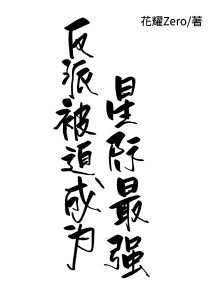 花耀Zero/著
反派被迫成为
星际最强